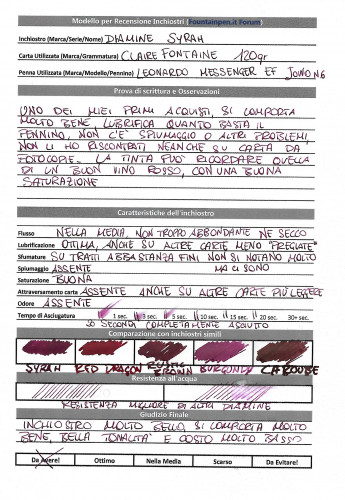 Modello per Recensione Inchiostri (Fountainpen.it Forum)
Inchiostro (Marca/Serie/Nome) DIAMINE SYRAH
Carta Utilizzata (Marca/Grammatura) CLAIRE FONTAINE 120gr
Penna Utilizzata (Marca/Modello/Pennino) LEONARDO MESSENGER EF JOWO N6
Prova di scrittura e Osservazioni
UNO DEI MIEI PRIMI ACQUISTI, SI COMPORTA
MOLTO BENE, LUBRIFICA QUANTO BASTA IL
PENNINO, NON C'E' SPIUMAGGIO O ALTRI PROBLEMI,
NON LI HO RISCONTRATI NEANCHE SU CARTA DA
FOTOCOPIE. LA TINTA PUO' RICORDARE QUELLA
DI UN BUON VINO ROSSO, CON UNA BUONA
SATURAZIONE
Caratteristiche dell'inchiostro
Flusso NELLA MEDIA, NON TROPPO ABBONDANTE NE SECCO
Lubrificazione OTTIMA, ANCHE SU ALTRE CARTE MENO "PREGIATE"
Sfumature SU TRATTI ABBASTANZA FINI NON SI NOTANO MOLTO
MA CI SONO
Spiumaggio ASSENTE
Saturazione BUONA
Attraversamento carta ASSENTE ANCHE SU ALTRE CARTE PIU' LEGGERE
Odore ASSENTE
Tempo di Asciugatura 1 sec. 3 sec. 5 sec. 10 sec. 15 sec. 20 sec. 30+ sec.
20 SECONDI COMPLETAMENTE ASCIUTTO
Comparazione con inchiostri simili
SYRAH RED DRAGON RUSTIC BROWN BURGUNDY CAROUBE
Resistenza all'acqua
RESISTENZA MIGLIORE DI ALTRI DIAMINE
Giudizio Finale
INCHIOSTRO MOLTO BELLO, SI COMPORTA MOLTO
BENE, BELLA TONALITA' E COSTO MOLTO BASSO
Da Avere! Ottimo Nella Media Scarso Da Evitare!